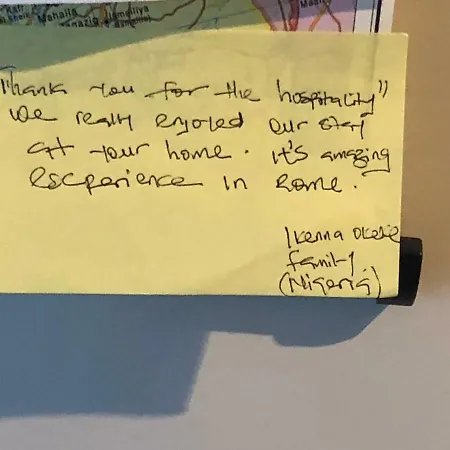 Mahalla
Ismailiya
Thank you for the hospitality"
We really enjoyed our stay
at your home. it's amazing
escperience in Rome.
Ikenna Okeke
family.
(Nigeria)